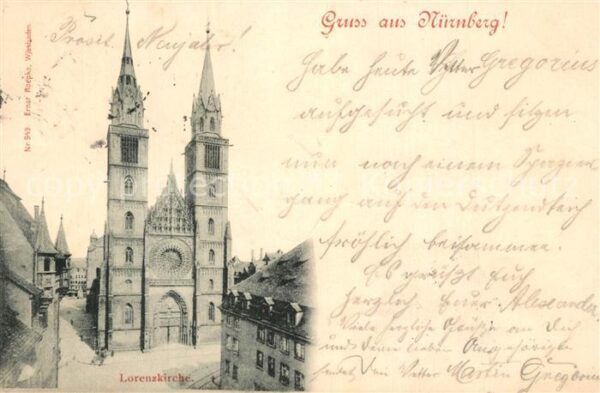 Gruss aus Nürnberg!
Prosit Neujahr!
Nr. 949 Ernst Roepke, Wiesbaden.
Habe heute Vetter Gregorius
aufgesucht und sitzen
nun nach einem Spazier
gang auf den Dutzendteich
fröhlich beisammen.
Es grüßt Euch
herzlich Euer Alexander
Viele herzliche Grüße an Dich
und Deine lieben Angehörigen
sendet Dein Vetter Martin Gregorius
Lorenzkirche.